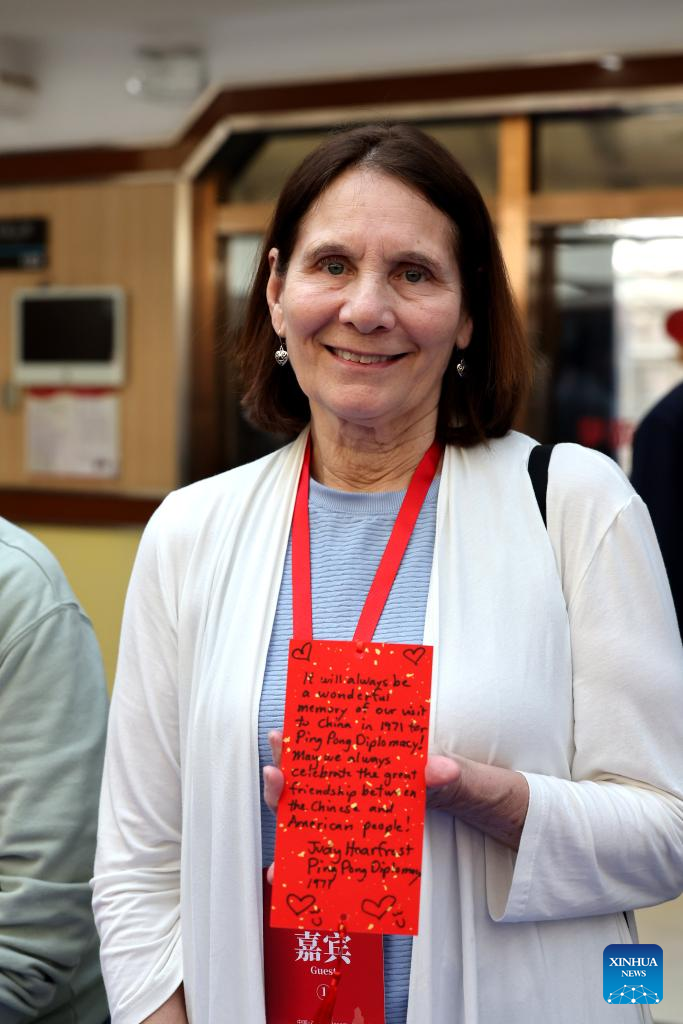 It will always be
a wonderful
memory of our visit
to China in 1971 for
Ping Pong Diplomacy!
May we always
celebrate the great
friendship between
the Chinese and
American people!
Judy Hoarfrost
Ping Pong Diplomacy
1971
嘉宾
Guest
1
XINHUA
NEWS